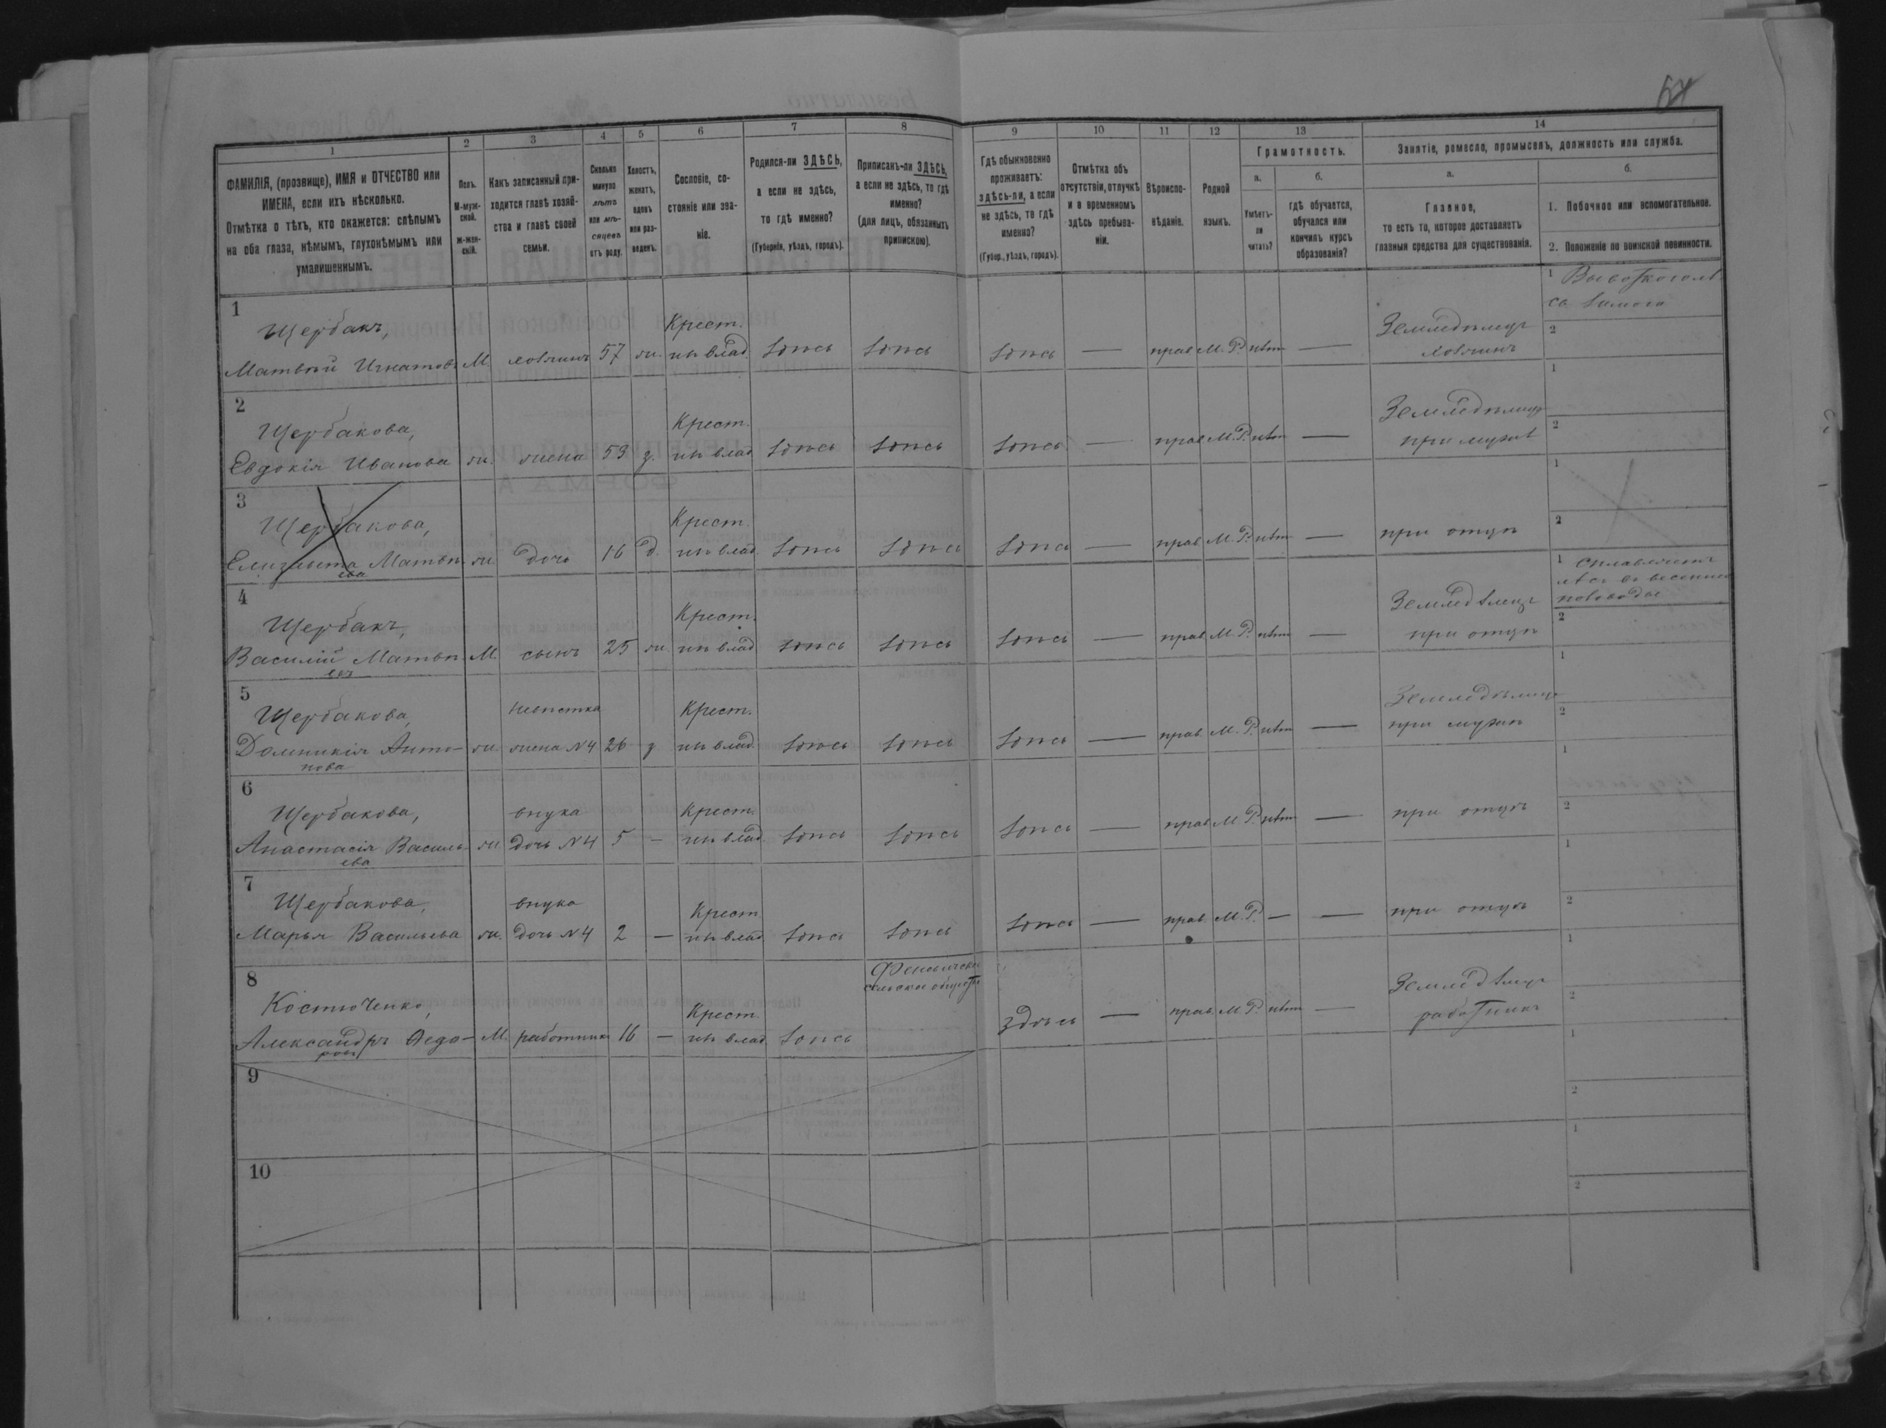 1
ФАМИЛІЯ, (прозвище), ИМЯ и ОТЧЕСТВО или
ИМЕНА, если ихъ нѣсколько.
Отмѣтка о тѣхъ, кто окажется: слѣпымъ
на оба глаза, нѣмымъ, глухонѣмымъ или
умалишеннымъ.
2
Полъ.
М-муж-
ской.
Ж-жен-
скій.
3
Какъ записанный при-
ходится главѣ хозяй-
ства и главѣ своей
семьи.
4
Сколько
минуло
лѣтъ
или мѣ-
сяцевъ
отъ роду.
5
Холостъ,
женатъ,
вдовъ
или раз-
веденъ.
6
Сословіе, со-
стояніе или зва-
ніе.
7
Родился-ли ЗДѢСЬ,
а если не здѣсь,
то гдѣ именно?
(Губернія, уѣздъ, городъ).
8
Приписанъ-ли ЗДѢСЬ,
а если не здѣсь, то гдѣ
именно?
(для лицъ, обязанныхъ
припискою).
9
Гдѣ обыкновенно
проживаетъ:
здѣсь-ли, а если
не здѣсь, то гдѣ
именно?
(Губер., уѣздъ, городъ).
10
Отмѣтка объ
отсутствіи, отлучкѣ
и о временномъ
здѣсь пребыва-
ніи.
11
Вѣроиспо-
вѣданіе.
12
Родной
языкъ.
13
Грамотность.
а.
Умѣетъ-
ли
читать?
б.
гдѣ обучается,
обучался или
кончилъ курсъ
образованія?
14
Занятіе, ремесло, промыселъ, должность или служба.
а.
Главное,
то есть то, которое доставляетъ
главныя средства для существованія.
б.
1. Побочное или вспомогательное.
2. Положеніе по воинской повинности.
1
Щербакъ,
Матвѣй Игнатовъ М хозяинъ 57 ж. Крест. изъ влад. здѣсь здѣсь здѣсь — прав. М.Р. нѣтъ — Земледѣлецъ хозяинъ
1
2
2
Щербакова,
Евдокія Иванова ж. жена 53 з. Крест. изъ влад. здѣсь здѣсь здѣсь — прав. М.Р. нѣтъ — Земледѣлецъ при мужѣ
1
2
3
Щербакова,
Елизавета Матвѣева ж. дочь 16 д. Крест. изъ влад. здѣсь здѣсь здѣсь — прав. М.Р. нѣтъ — при отцѣ
1
2
4
Щербакъ,
Василій Матвѣевъ М. сынъ 25 ж. Крест. изъ влад. здѣсь здѣсь здѣсь — прав. М.Р. нѣтъ — Земледѣлецъ при отцѣ
1
2
5
Щербакова,
Домникія Антонова ж. невѣстка жена №4 26 з Крест. изъ влад. здѣсь здѣсь здѣсь — прав. М.Р. нѣтъ — Земледѣлецъ при мужѣ
1
2
6
Щербакова,
Анастасія Васильева ж. внука дочь №4 5 — Крест. изъ влад. здѣсь здѣсь здѣсь — прав. М.Р. нѣтъ — при отцѣ
1
2
7
Щербакова,
Марья Васильева ж. внука дочь №4 2 — Крест. изъ влад. здѣсь здѣсь здѣсь — прав. М.Р. — — при отцѣ
1
2
8
Костюченко,
Александръ Ѳедоровъ М. работникъ 16 — Крест. изъ влад. здѣсь сельское здѣсь — прав. М.Р. нѣтъ — Земледѣлецъ работникъ
1
2
9
1
2
10
1
2